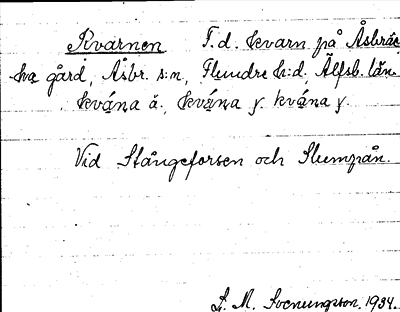 Kvarnen T. d. kvarn på Åsbräc
ka gård, Åsbr. s:n, Flundre h:d, Älfsb. län.
kvána ä., kvána y. kvána y.
Vid Stångeforsen och Slumpån.
S. M. Svenungsson. 1934.